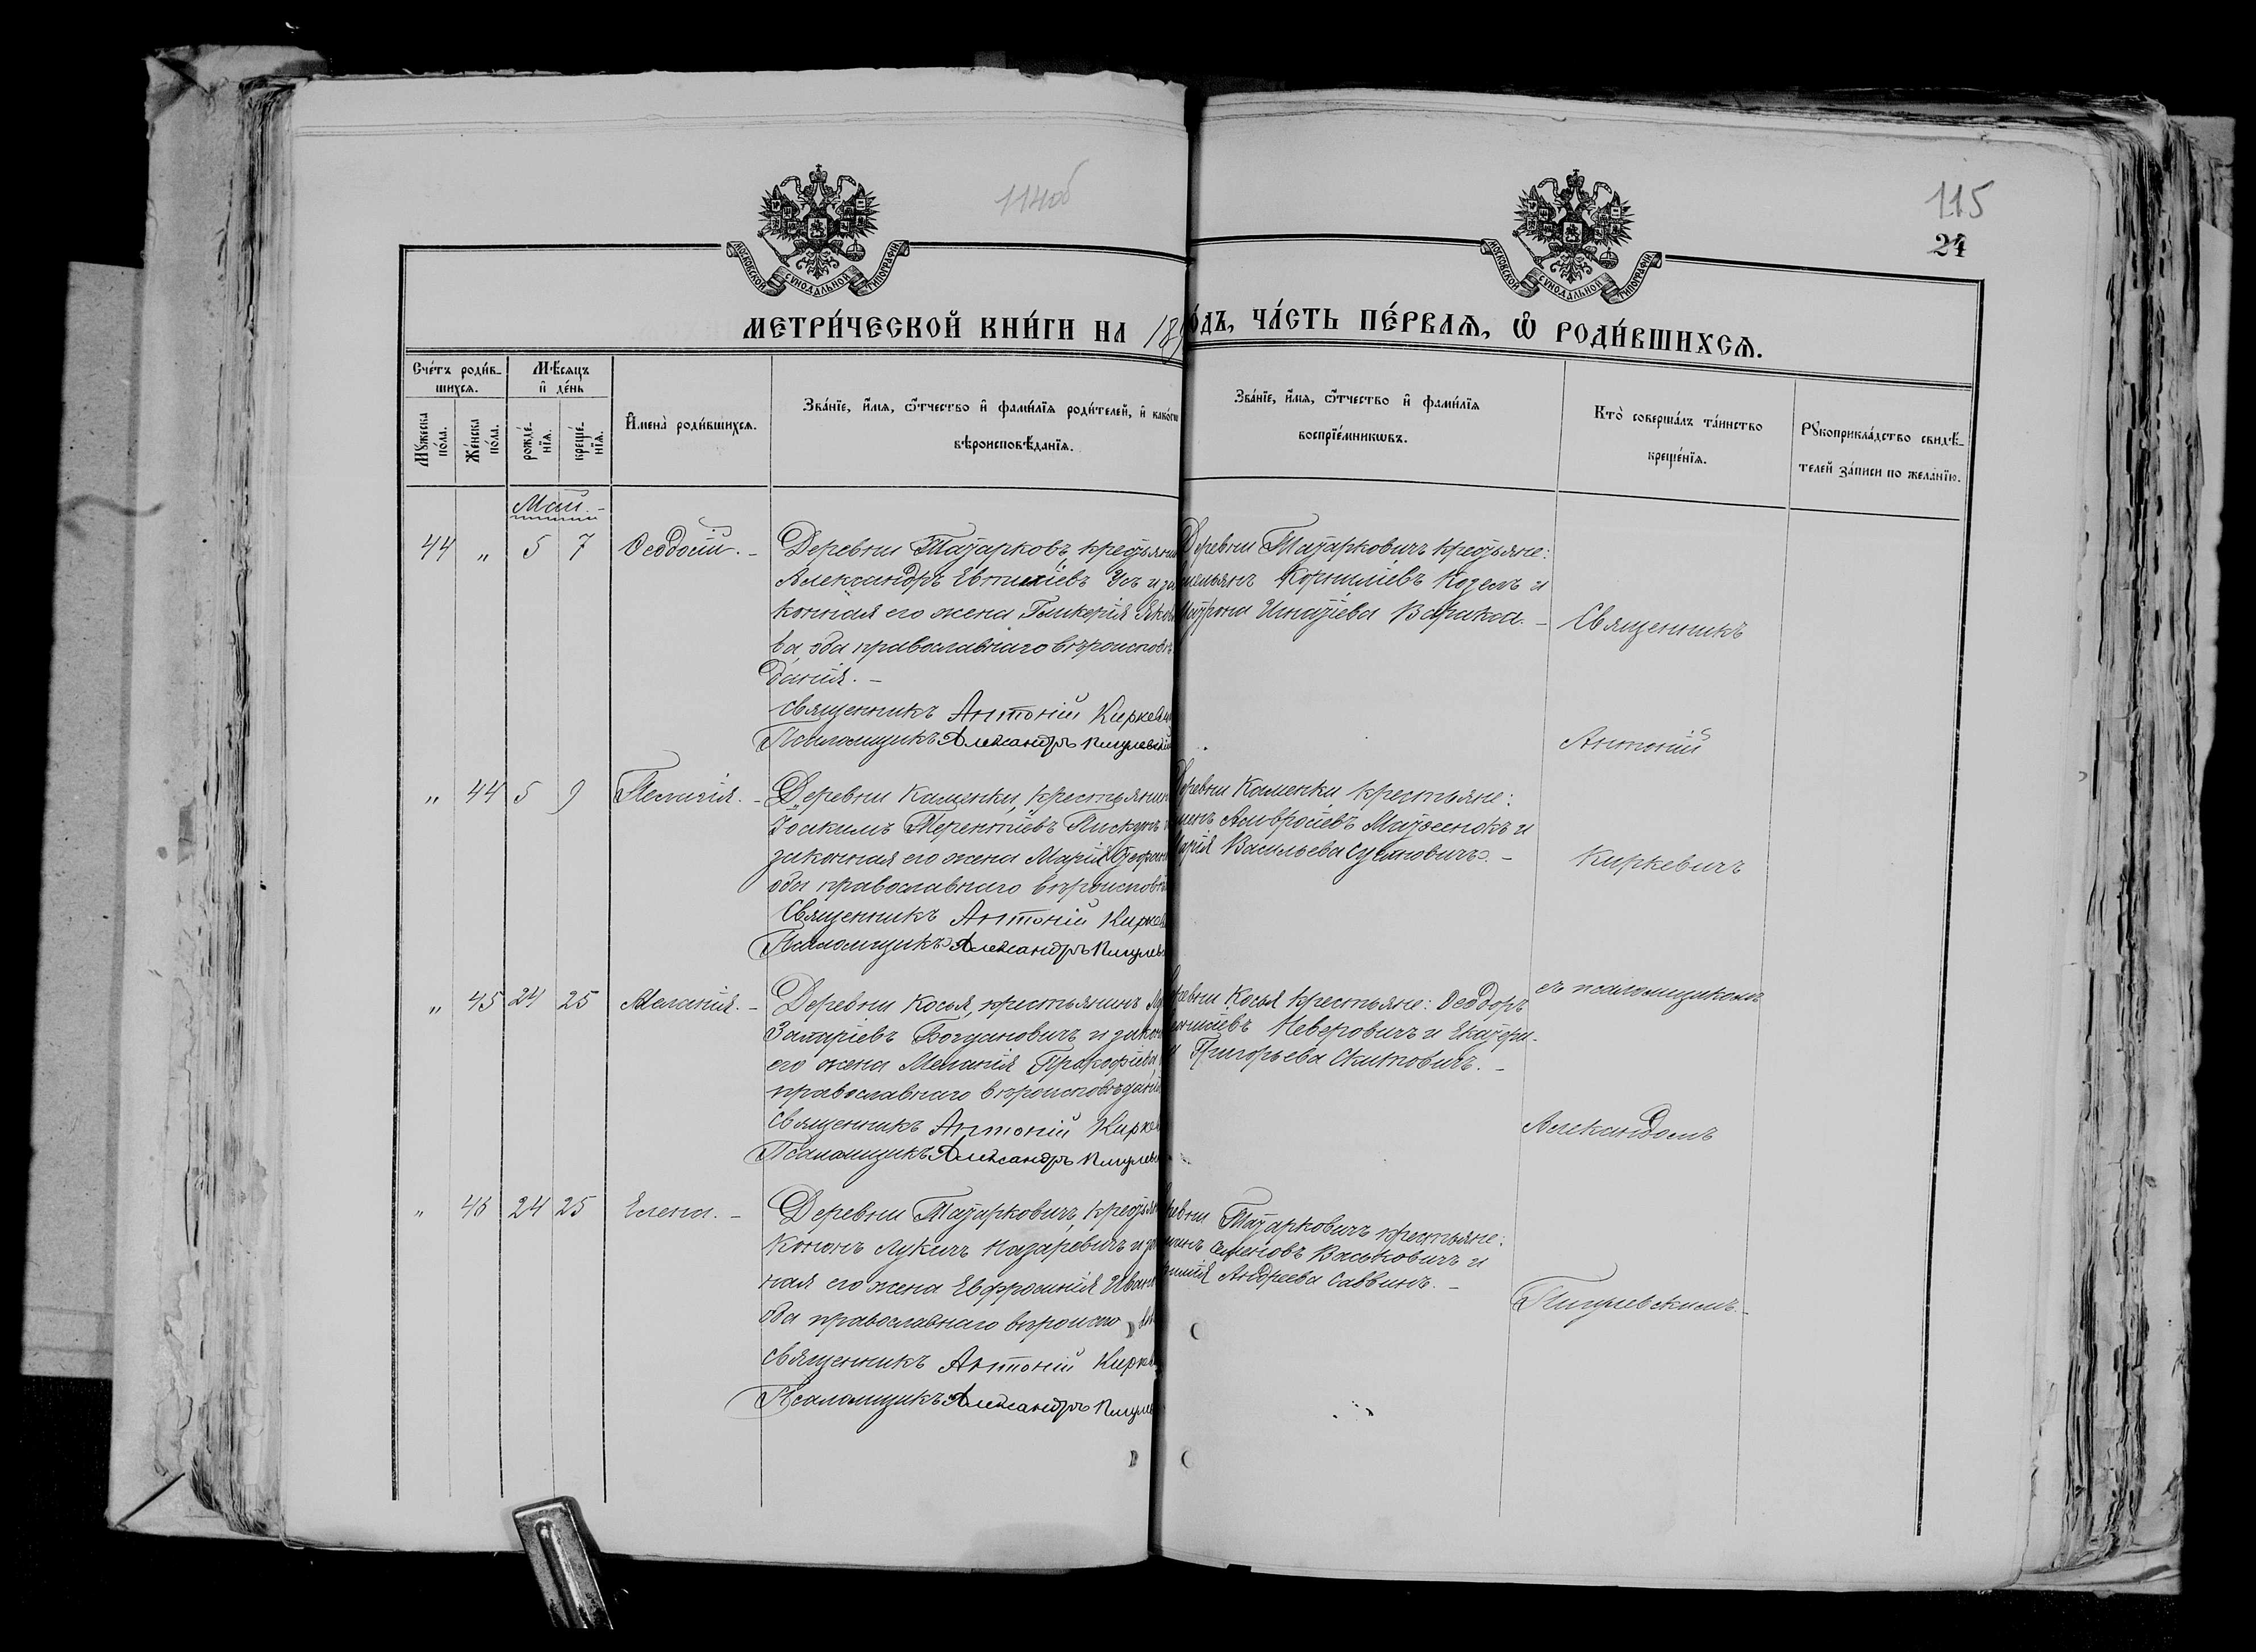 114об
115
24
МОСКОВСКОЙ СѴНОДАЛЬНОЙ ТИПОГРАФІИ
МОСКОВСКОЙ СѴНОДАЛЬНОЙ ТИПОГРАФІИ
МЕТРИ́ЧЕСКОЙ КНИ́ГИ НА 189
О́ДЪ, ЧА́СТЬ ПЕ́РВАѦ, Ѽ РОДИ́ВШИХСѦ.
Сче́тъ роди́в-
шихсѧ.
Мѣ́сѧцъ
и҆ де́нь
Мꙋ́жеска
по́ла.
Же́нска
по́ла.
рожде́-
нїѧ.
креще́-
нїѧ.
И҆мена̀ роди́вшихсѧ.
Зва́нїе, и҆́мѧ, ѻ҆́тчество и҆ фами́лїѧ роди́телей, и҆ како́гѡ
вѣроисповѣ́данїѧ.
Зва́нїе, и҆́мѧ, ѻ҆́тчество и҆ фами́лїѧ
воспрїе́мникѡвъ.
Кто̀ соверша́лъ та́инство
креще́нїѧ.
Рꙋкоприкла́дство свидѣ́-
телей за́писи по жела́нїю.
Май. -
44 „ 5 7 Ѳеодосій. -
Деревни Татарковъ, крестьянин
Александръ Евтихіевъ Усъ и за
конная его жена Гликерія Яков
ва, оба православнаго вѣроисповѣ
данія. -
Священникъ Антоній Киркеви
Псаломщикъ Александръ Пигулевскій
Деревни Татарковичъ крестьяне:
Корниліевъ Козелъ и
Игнатіева -
Священникъ
Антоній
„ 44 5 9 Пелагія. -
Деревни Каменки, крестьянин
Іоакимъ Терентіевъ Пискунъ
законная его жена Марія Стефан
оба православнаго вѣроисповѣ
Священникъ Антоній Киркев
Псаломщикъ Александръ Пигулев
Деревни Каменки крестьяне:
Амвросіевъ и
Марія Васильева -
Киркевичъ
„ 45 24 25 Меланія. -
Деревни Косья, крестьянинъ
Богдановичъ и закон
его жена Меланія Прокофіева
православнаго вѣроисповѣданія
Священникъ Антоній Кирке
Псаломщикъ Александръ Пигулев
Косья крестьяне: Ѳеодоръ
Неверовичъ и Екатери-
Григорьева Скитовичъ. -
съ псаломщикомъ
Александромъ
„ 46 24 25 Елена. -
Деревни Татарковичъ, крестьян
Кононъ Лукичъ Назаревичъ и за
ная его жена Евфросинія Иван
оба православнаго вѣроиспо
Священникъ Антоній Кирк
Псаломщикъ Александръ Пигул
Татарковичъ крестьяне:
Семеновъ Васьковичъ и
Андреева Саввинъ. -
Пигулевскимъ. -